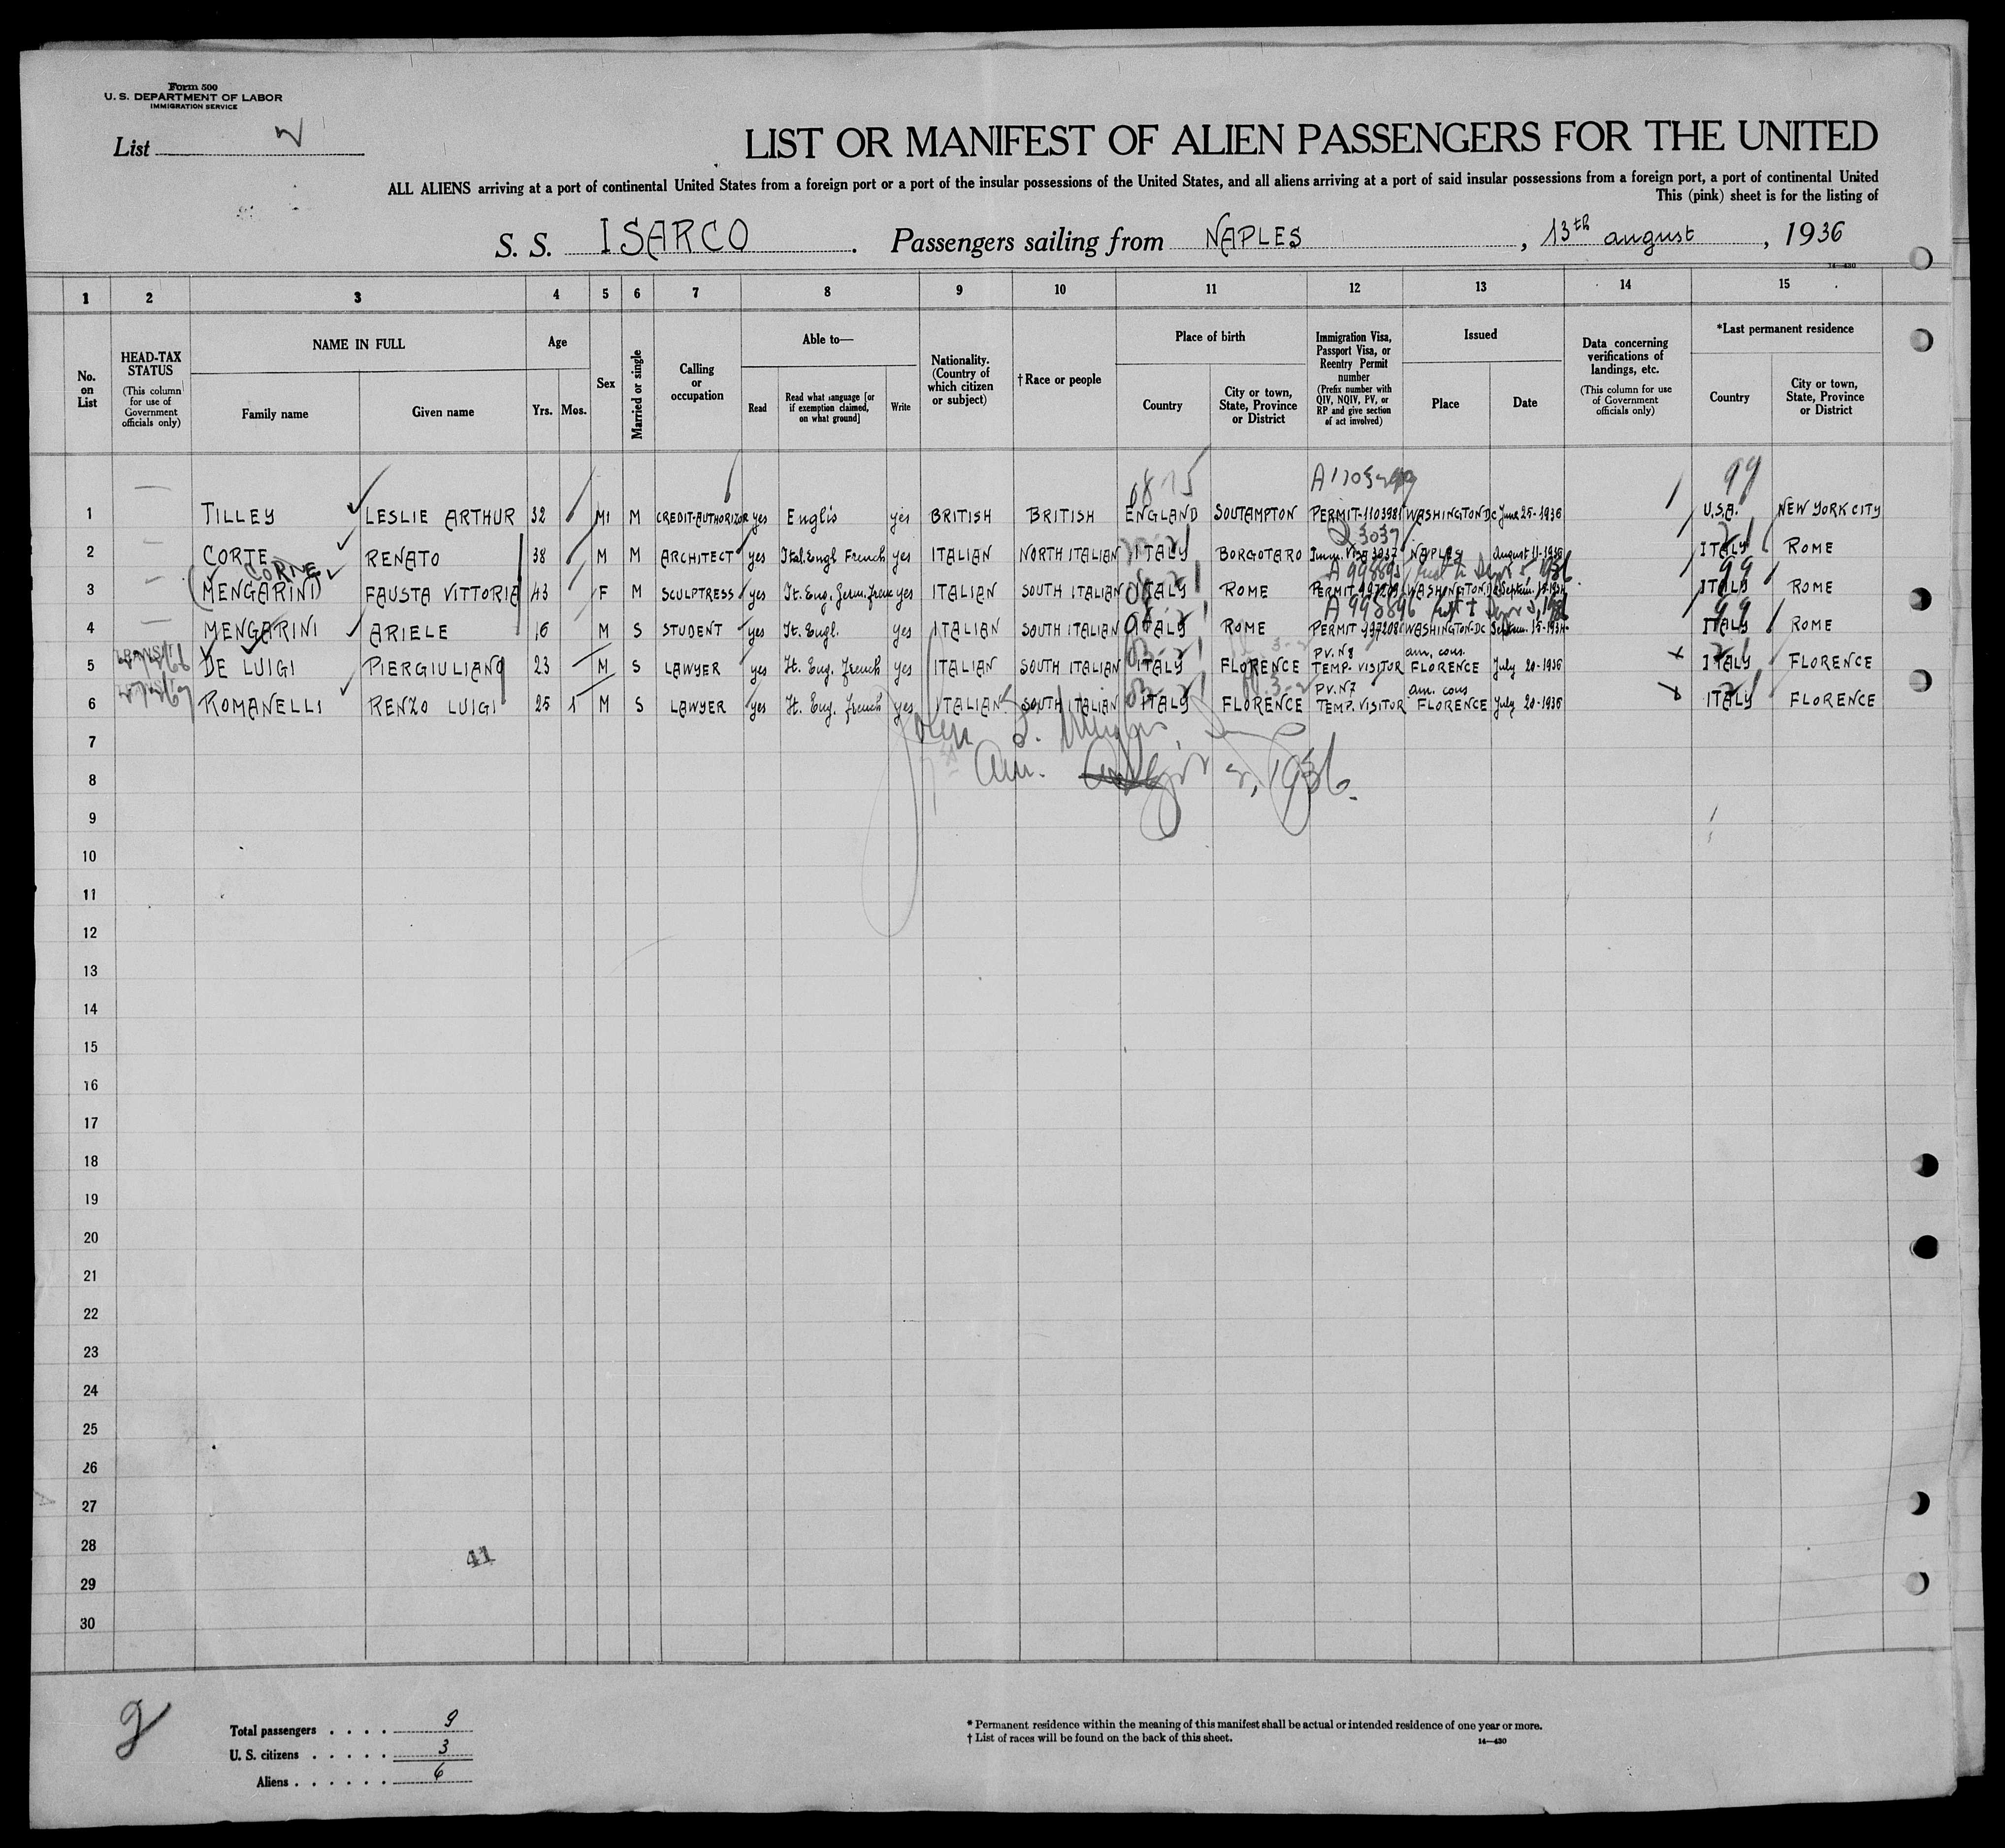 Form 500
U. S. DEPARTMENT OF LABOR
IMMIGRATION SERVICE
List
LIST OR MANIFEST OF ALIEN PASSENGERS FOR THE UNITED
ALL ALIENS arriving at a port of continental United States from a foreign port or a port of the insular possessions of the United States, and all aliens arriving at a port of said insular possessions from a foreign port, a port of continental United
This (pink) sheet is for the listing of
S. S. ISARCO. Passengers sailing from NAPLES, 13th august, 1936
14—430
1 2 3 4 5 6 7 8 9 10 11 12 13 14 15
No. on List
HEAD-TAX STATUS
(This column for use of Government officials only)
NAME IN FULL
Family name Given name
Age
Yrs. Mos.
Sex
Married or single
Calling or occupation
Able to—
Read
Read what language [or if exemption claimed, on what ground]
Write
Nationality. (Country of which citizen or subject)
†Race or people
Place of birth
Country
City or town, State, Province or District
Immigration Visa, Passport Visa, or Reentry Permit number
(Prefix number with QIV, NQIV, PV, or RP and give section of act involved)
Issued
Place Date
Data concerning verifications of landings, etc.
(This column for use of Government officials only)
*Last permanent residence
Country
City or town, State, Province or District
99
1 TILLEY LESLIE ARTHUR 32 M M CREDIT-AUTHORIZOR yes Englis yes BRITISH BRITISH ENGLAND SOUTAMPTON PERMIT-1103981 WASHINGTON DC June 25-1936 U.S.A. NEW YORK CITY
Q 3037
2 CORTE RENATO 38 M M ARCHITECT yes Ital. Engl. French yes ITALIAN NORTH ITALIAN ITALY BORGOTARO Imm. Visa 3037 NAPLES august 11-1936 ITALY ROME
CORNE
3 (MENGARINI) FAUSTA VITTORIA 43 F M SCULPTRESS yes It. Eng. Germ. French yes ITALIAN SOUTH ITALIAN ITALY ROME PERMIT 997209 WASHINGTON DC Septem. ITALY ROME
4 MENGARINI ARIELE 16 M S STUDENT yes It. Engl. yes ITALIAN SOUTH ITALIAN ITALY ROME PERMIT 997208 WASHINGTON-DC Septem. 15-1934 ITALY ROME
TRANSIT
PV. N8 am. cons.
5 DE LUIGI PIERGIULIANO 23 M S LAWYER yes It. Eng. French yes ITALIAN SOUTH ITALIAN ITALY FLORENCE TEMP. VISITOR FLORENCE July 20-1936 ITALY FLORENCE
PV. N7 am. cons
6 ROMANELLI RENZO LUIGI 25 1 M S LAWYER yes It. Eng. French yes ITALIAN SOUTH ITALIAN ITALY FLORENCE TEMP. VISITOR FLORENCE July 20-1936 ITALY FLORENCE
7
8
9
10
11
12
13
14
15
16
17
18
19
20
21
22
23
24
25
26
27
28
29
30
41
2
Total passengers . . . . 9
U. S. citizens . . . . . 3
Aliens . . . . . . 6
* Permanent residence within the meaning of this manifest shall be actual or intended residence of one year or more.
† List of races will be found on the back of this sheet.
14—430